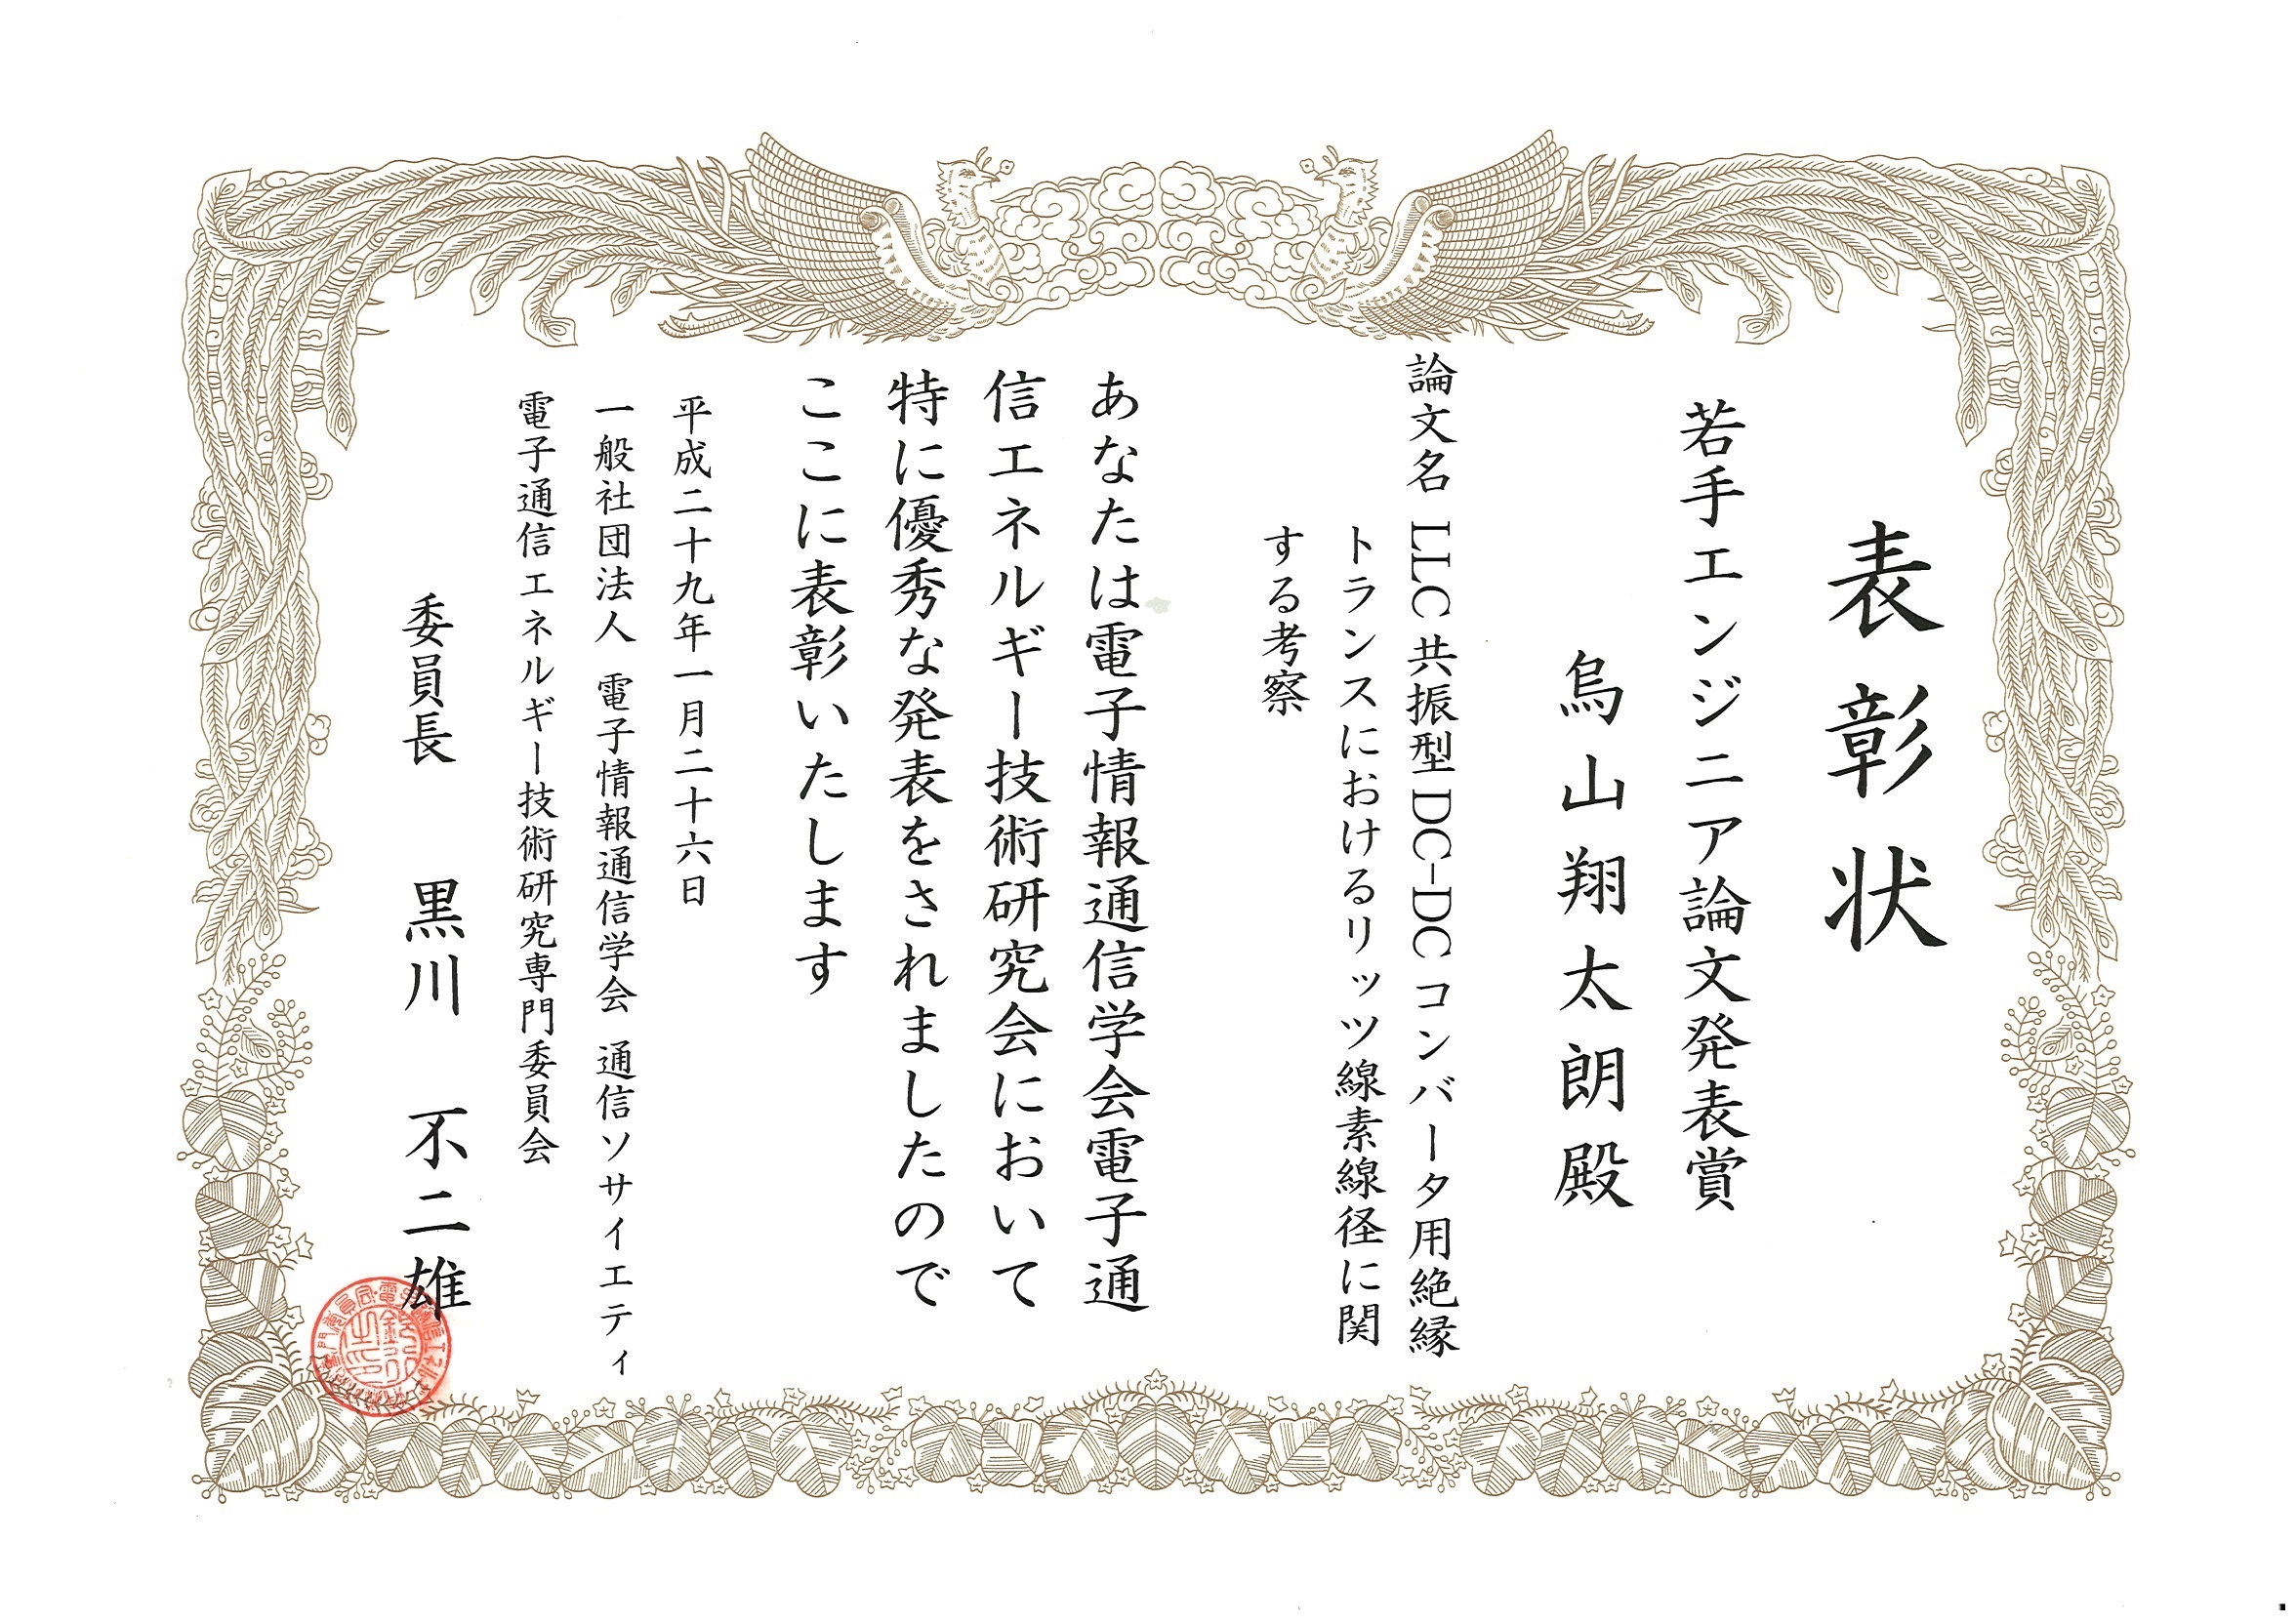 表彰状
若手エンジニア論文発表賞
烏山翔太朗殿
論文名 LLC共振型DC-DCコンバータ用絶縁
トランスにおけるリッツ線素線線径に関
する考察
あなたは電子情報通信学会電子通
信エネルギー技術研究会において
特に優秀な発表をされましたので
ここに表彰いたします
平成二十九年一月二十六日
一般社団法人 電子情報通信学会 通信ソサイエティ
電子通信エネルギー技術研究専門委員会
委員長 黒川 不二雄